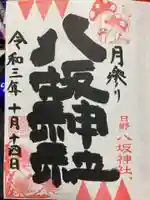 月参り
八坂神社
日野
八坂神社
令和三年十月十四日